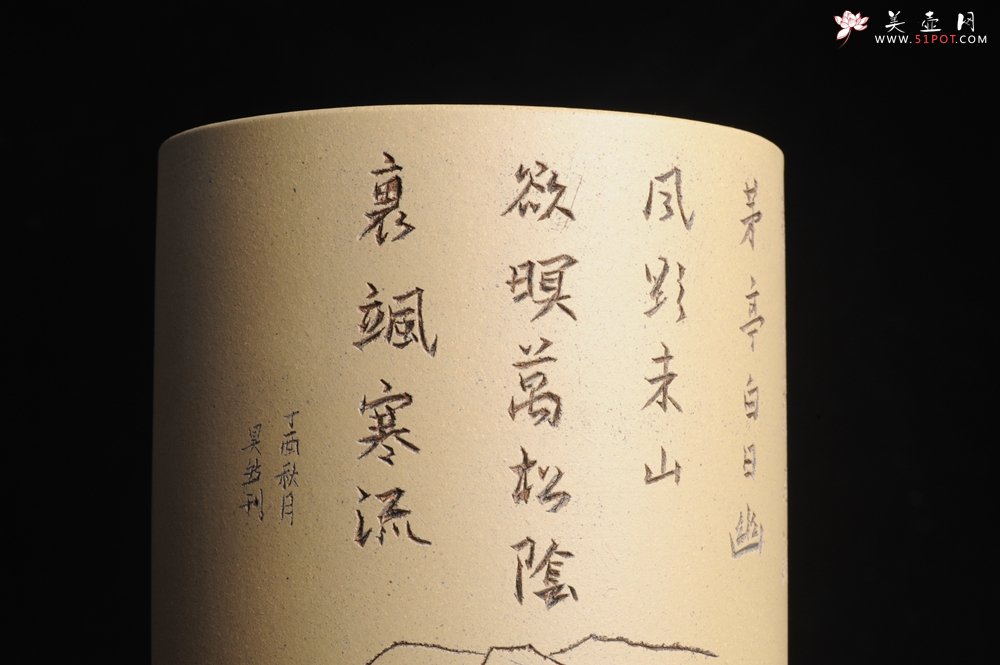 美壶网
WWW.51POT.COM
茅亭白日幽
风影未山
欲暝萬松陰
裏颯寒流
丁酉秋月
刊